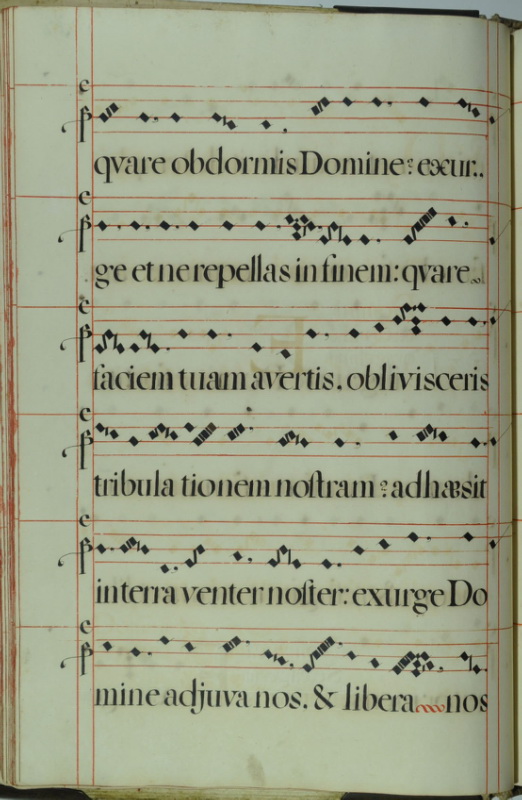 qvare obdormis Domine? exur..
ge et ne repellas in finem: qvare
faciem tuam avertis. oblivisceris
tribula tionem noſtram? adhæsit
in terra venter noſter: exurge Do
mine adjuva nos. & libera nos